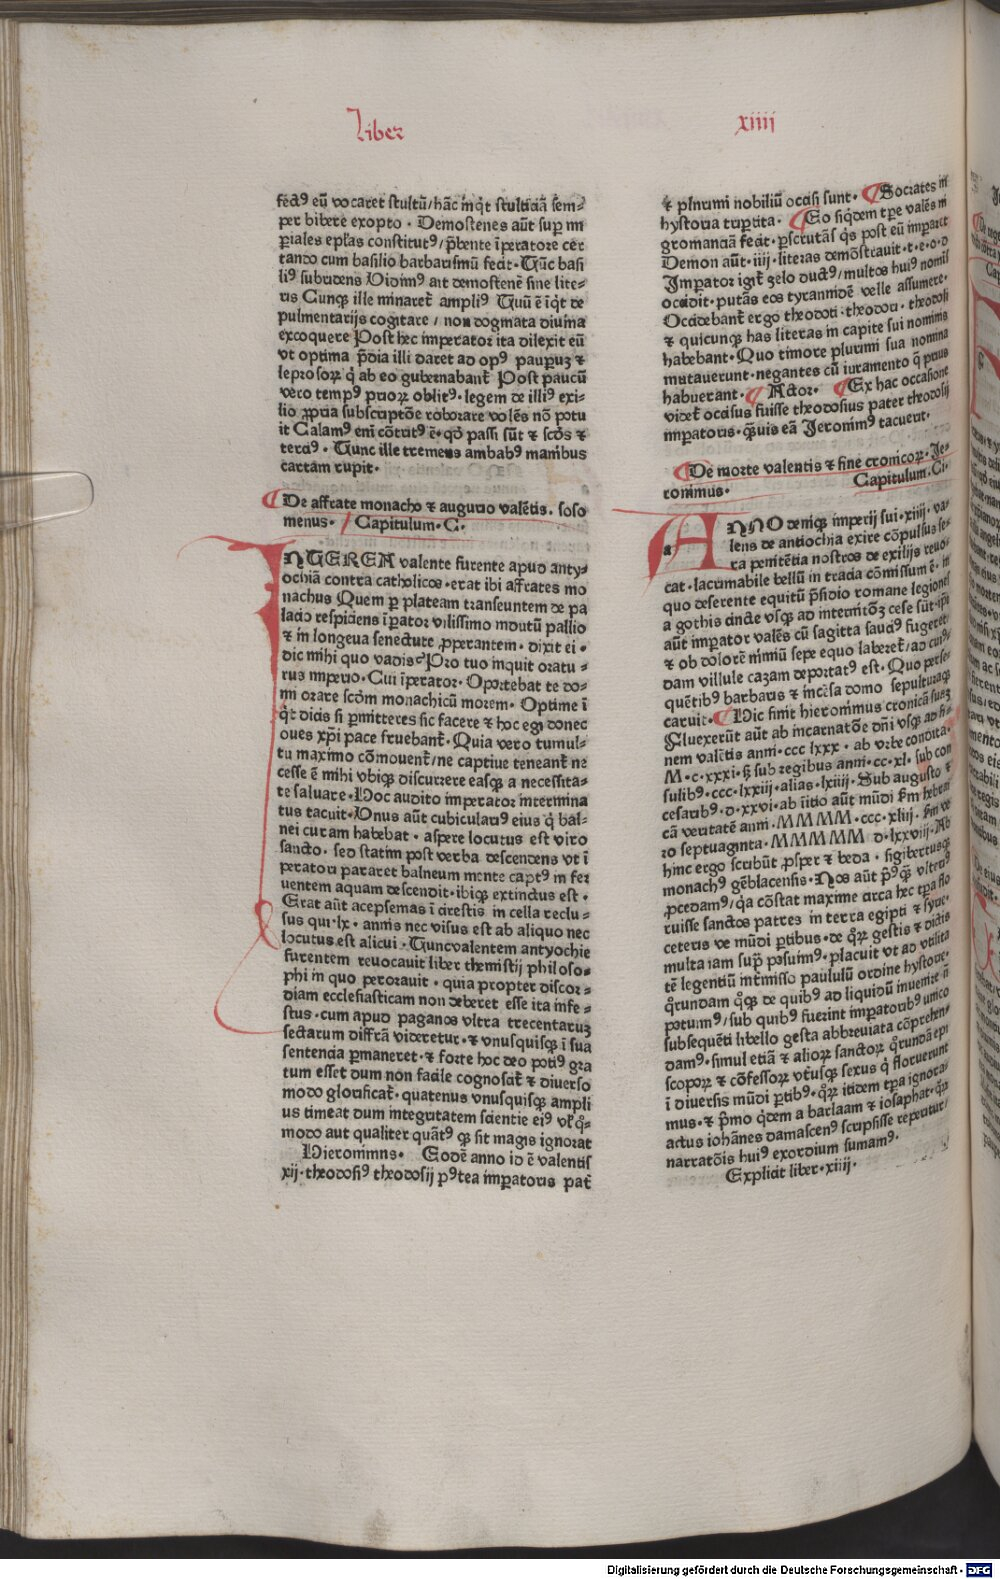 Liber
xiiii
fectꝰ eū vocaret stultū/hāc inq̇t stulticiā sem-
per bibere exopto · Demostenes aūt sup im
periales eplas constitutꝰ/pbente īperatore cer
tando cum basilio barbarismū fecit · Tūc basi
liꝰ subridens Vidimꝰ ait demostenē sine lite-
ris Cunqꝫ ille minaret ampliꝰ Tuū ē īq̇t de
pulmentarijs cogitare / non dogmata diuina
excoquere Post hec imperator ita dilexit eū
vt optima p̄dia illi daret ad opꝰ pauperuꝫ ⁊
leprosoꝝ q̇ ab eo gubernabant̄ Post paucū
vero tempꝰ prioꝝ oblitꝰ · legem de illiꝰ exi-
lio ꝓpria subscriptōe roborare volēs nō potu
it Calamꝰ eni cōtritꝰ ē · qd̓ passi sūt ⁊ scd̓s ⁊
terciꝰ · Tunc ille tremens ambabꝰ manibus
cartam rupit ·
De affrate monacho ⁊ augurio valētis · soso
menus · Capitulum · C ·
INTEREA valente furente apud anty-
ochiā contra catholicos · erat ibi affrates mo
nachus Quem ꝑ plateam transeuntem de pa
lacio respiciens īp̄ator vilissimo indutū pallio
⁊ in longeua senectute ꝓperantem · dixit ei ·
dic mihi quo vadis Pro tuo inquit oratu-
rus imperio · Cui īperator · Oportebat te do-
mi orare scd̓m monachicū morem · Optime ī
q̇t dicis si ꝑmitteres sic facere ⁊ hoc egi donec
oues xp̄i pace fruebant̄ · Quia vero tumul-
tu maximo cōmouent̄/ne captiue teneant̄ ne
cesse ē mihi vbiqꝫ discurrere easqꝫ a necessita-
te saluare · Hoc audito imperator intermina
tus tacuit · Vnus aūt cubiculariꝰ eius q̇ bal-
nei curam habebat · aspere locutus est viro
sancto · sed statim post verba descendens vt ī
peratori pararet balneum mente captꝰ in fer
uentem aquam descendit · ibiqꝫ extinctus est ·
Erat aūt acepsemas ī cirestis in cella reclu-
sus qui · lx · annis nec visus est ab aliquo nec
locutus est alicui · Tunc valentem antyochie
furentem reuocauit liber themistij philoso-
phi in quo perorauit · quia propter discor-
diam ecclesiasticam non deberet esse ita infe-
stus · cum apud paganos vltra trecentaruꝫ
sectarum diffrā videretur · ⁊ vnusquisqꝫ ī sua
sentencia ꝑmaneret · ⁊ forte hoc deo potiꝰ gra
tum esset dum non facile cognoscat̄ ⁊ diuerso
modo glorificat̄ · quatenus vnusquisqꝫ ampli
us timeat dum integritatem scientie eiꝰ vl̓ q̊-
modo aut qualiter quātꝰ qꝫ sit magis ignorat
Hieronimus · Eodē anno id ē valentis
xij · theodosiꝰ theodosij pꝰtea imꝑatoris pat̄
⁊ plurimi nobiliū occisi sunt · Socrates in
hystoria tripertita · Eo siq̇dem tꝑe valēs ni
gromanciā fecit · ꝑscrutās q̇s post eū imparet
Demon aūt · iiij · literas demōstrauit · t · e · o · d
Imperator igit̄ zelo ductꝰ/multos huiꝰ nomīs
occidit · putās eos tyrannidē velle assumere ·
Occidebant̄ ergo theodoti · theodori · theodosii
⁊ quicunqꝫ has literas in capite sui nominis
habebant · Quo timore plurimi sua nomina
mutauerunt · negantes cū iuramento q̄ prius
habuerant · Actor · Ex hac occasione
videt̄ occisus fuisse theodosius pater theodosij
imperatoris · q̄muis eā Ieronimꝰ tacuerit ·
De morte valentis ⁊ fine cronicoꝝ · Je-
ronimus · Capitulum · Ci ·
ANNO deniqꝫ imperij sui · xiiij · va-
lens de antiochia exire cōpulsus se-
ra penitētia nostros de exilijs reuo-
cat · lacrimabile bellū in tracia cōmissum ē · in
quo deserente equitū p̄sidio romane legiones
a gothis cincte vsqꝫ ad internitōꝫ cese sūt · ip̄e
aūt imperator valēs cū sagitta sauciꝰ fugeret/
⁊ ob dolorē nimiū sepe equo laberet̄/ad cuiꝰ-
dam villule cazam deportatꝰ est · Quo perse-
quētibꝰ barbaris ⁊ incēsa domo sepulturaqꝫ
caruit · Hic finit hieronimus cronicā suaꝫ
Fluxerūt aūt ab incarnatōe dn̄i vsqꝫ ad fi-
nem valētis anni · ccc lxxx · ab vrbe condita ·
M · c · xxxi · s̄ sub regibus anni · cc · xl · sub con
sulibꝰ · ccc · lxxiij · alias · lxiiij · Sub augusto ⁊
cesaribꝰ · d · xxvi · ab īitio aūt mūdi s̄m hebrai
cā veritatē anni · MMMM · ccc · xliij · s̄m ve
ro septuaginta · MMMMM d · lxxviij · Ab
hinc ergo scribūt ꝓsper ⁊ beda · sigibertusqꝫ
monachꝰ gēblacensis · Nos aūt p̄ꝰqꝫ vlteriꝰ
ꝓcedamꝰ/q̇a cōstat maxime circa hec tꝑa flo
ruisse sanctos patres in terra egipti ⁊ syrie ·
ceteris ve mūdi ꝑtibus · de q̊ꝝ gestis ⁊ dictis
multa iam supꝰ posuimꝰ · placuit vt ad vtilita
tē legentiū intmisso paululū ordine hystorie ·
q̊rundam q̊qꝫ de quibꝰ ad liquidū inuenire nō
potuimꝰ/sub quibꝰ fuerint imperatoribꝰ vnico
subsequēti libello gesta abbreuiata cōprehen-
damꝰ · simul etiā ⁊ alioꝝ sanctoꝝ q̊rundā epi
scopoꝝ ⁊ cōfessoꝝ vt̄usqꝫ sexus q̇ floruerunt
ī diuersis mūdi ꝑtibꝰ · q̊ꝝ itidem tꝑa ignora-
mus · ⁊ p̄mo q̇dem a barlaam ⁊ iosaphat · q̊ꝝ
actus iohānes damascenꝰ scripsisse reperitur/
narratōis huiꝰ exordium sumamꝰ ·
Explicit liber · xiiij ·
Digitalisierung gefördert durch die Deutsche Forschungsgemeinschaft - DFG